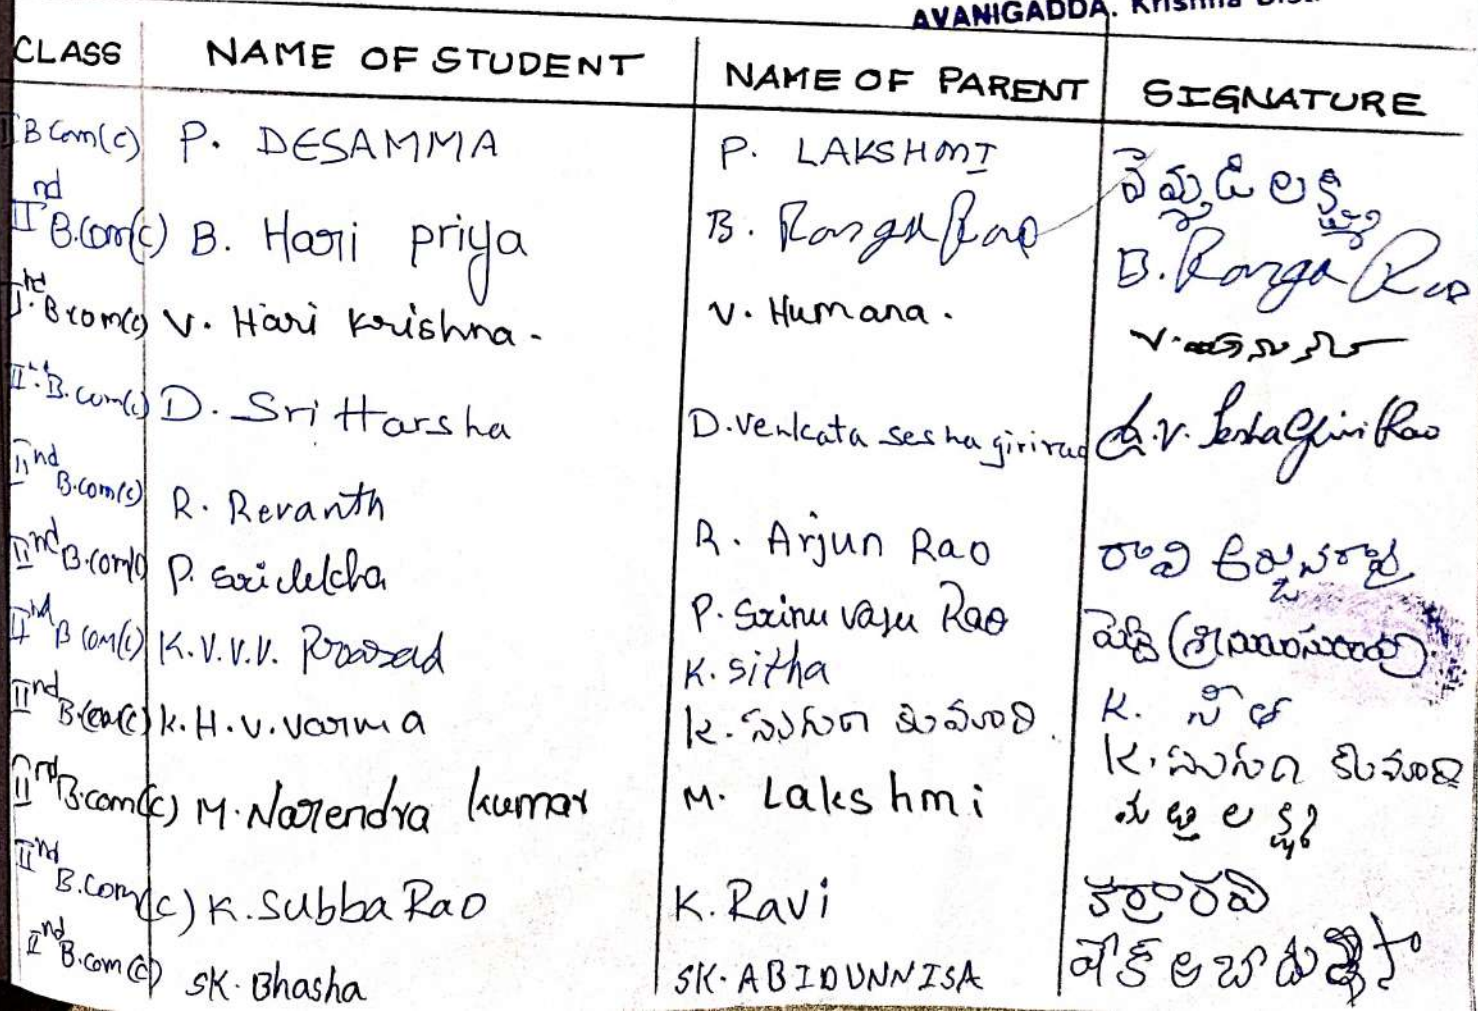 AVANIGADDA. Krishna
CLASS NAME OF STUDENT NAME OF PARENT SIGNATURE
B Com(c) P. DESAMMA P. LAKSHMI వేమ్నడి లక్ష్మి
IInd B.Com(c) B. Hari priya B. Ranga Rao B. Ranga Rao
B com(c) V. Hari Krishna. V. Humana. V.
IInd B.com(c) D. Sri Harsha D. Venkata seshagirirao D.V. SeshaGiri Rao
IInd B.com(c) R. Revanth R. Arjun Rao రావి అర్జునరావు
IInd B.com(c) P. Srilekha P. Srinu vasu Rao
IInd B com(c) K.V.V.V. Prasad K. sitha K. సీత
IInd B.com(c) K. H. V. Varma K. సుగుణ కుమారి. K. సుగుణ కుమారి
IInd B.com(c) M. Narendra kumar M. Lakshmi లక్ష్మి
IInd B.com(c) K. Subba Rao K. Ravi కర్రారవి
IInd B.com(c) SK. Bhasha SK. ABIDUNNISA షేక్